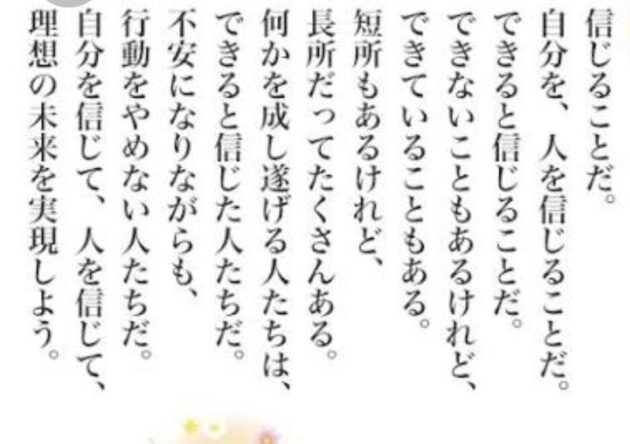 信じることだ。
自分を、人を信じることだ。
できると信じることだ。
できないこともあるけれど、
できていることもある。
短所もあるけれど、
長所だってたくさんある。
何かを成し遂げる人たちは、
できると信じた人たちだ。
不安になりながらも、
行動をやめない人たちだ。
自分を信じて、人を信じて、
理想の未来を実現しよう。